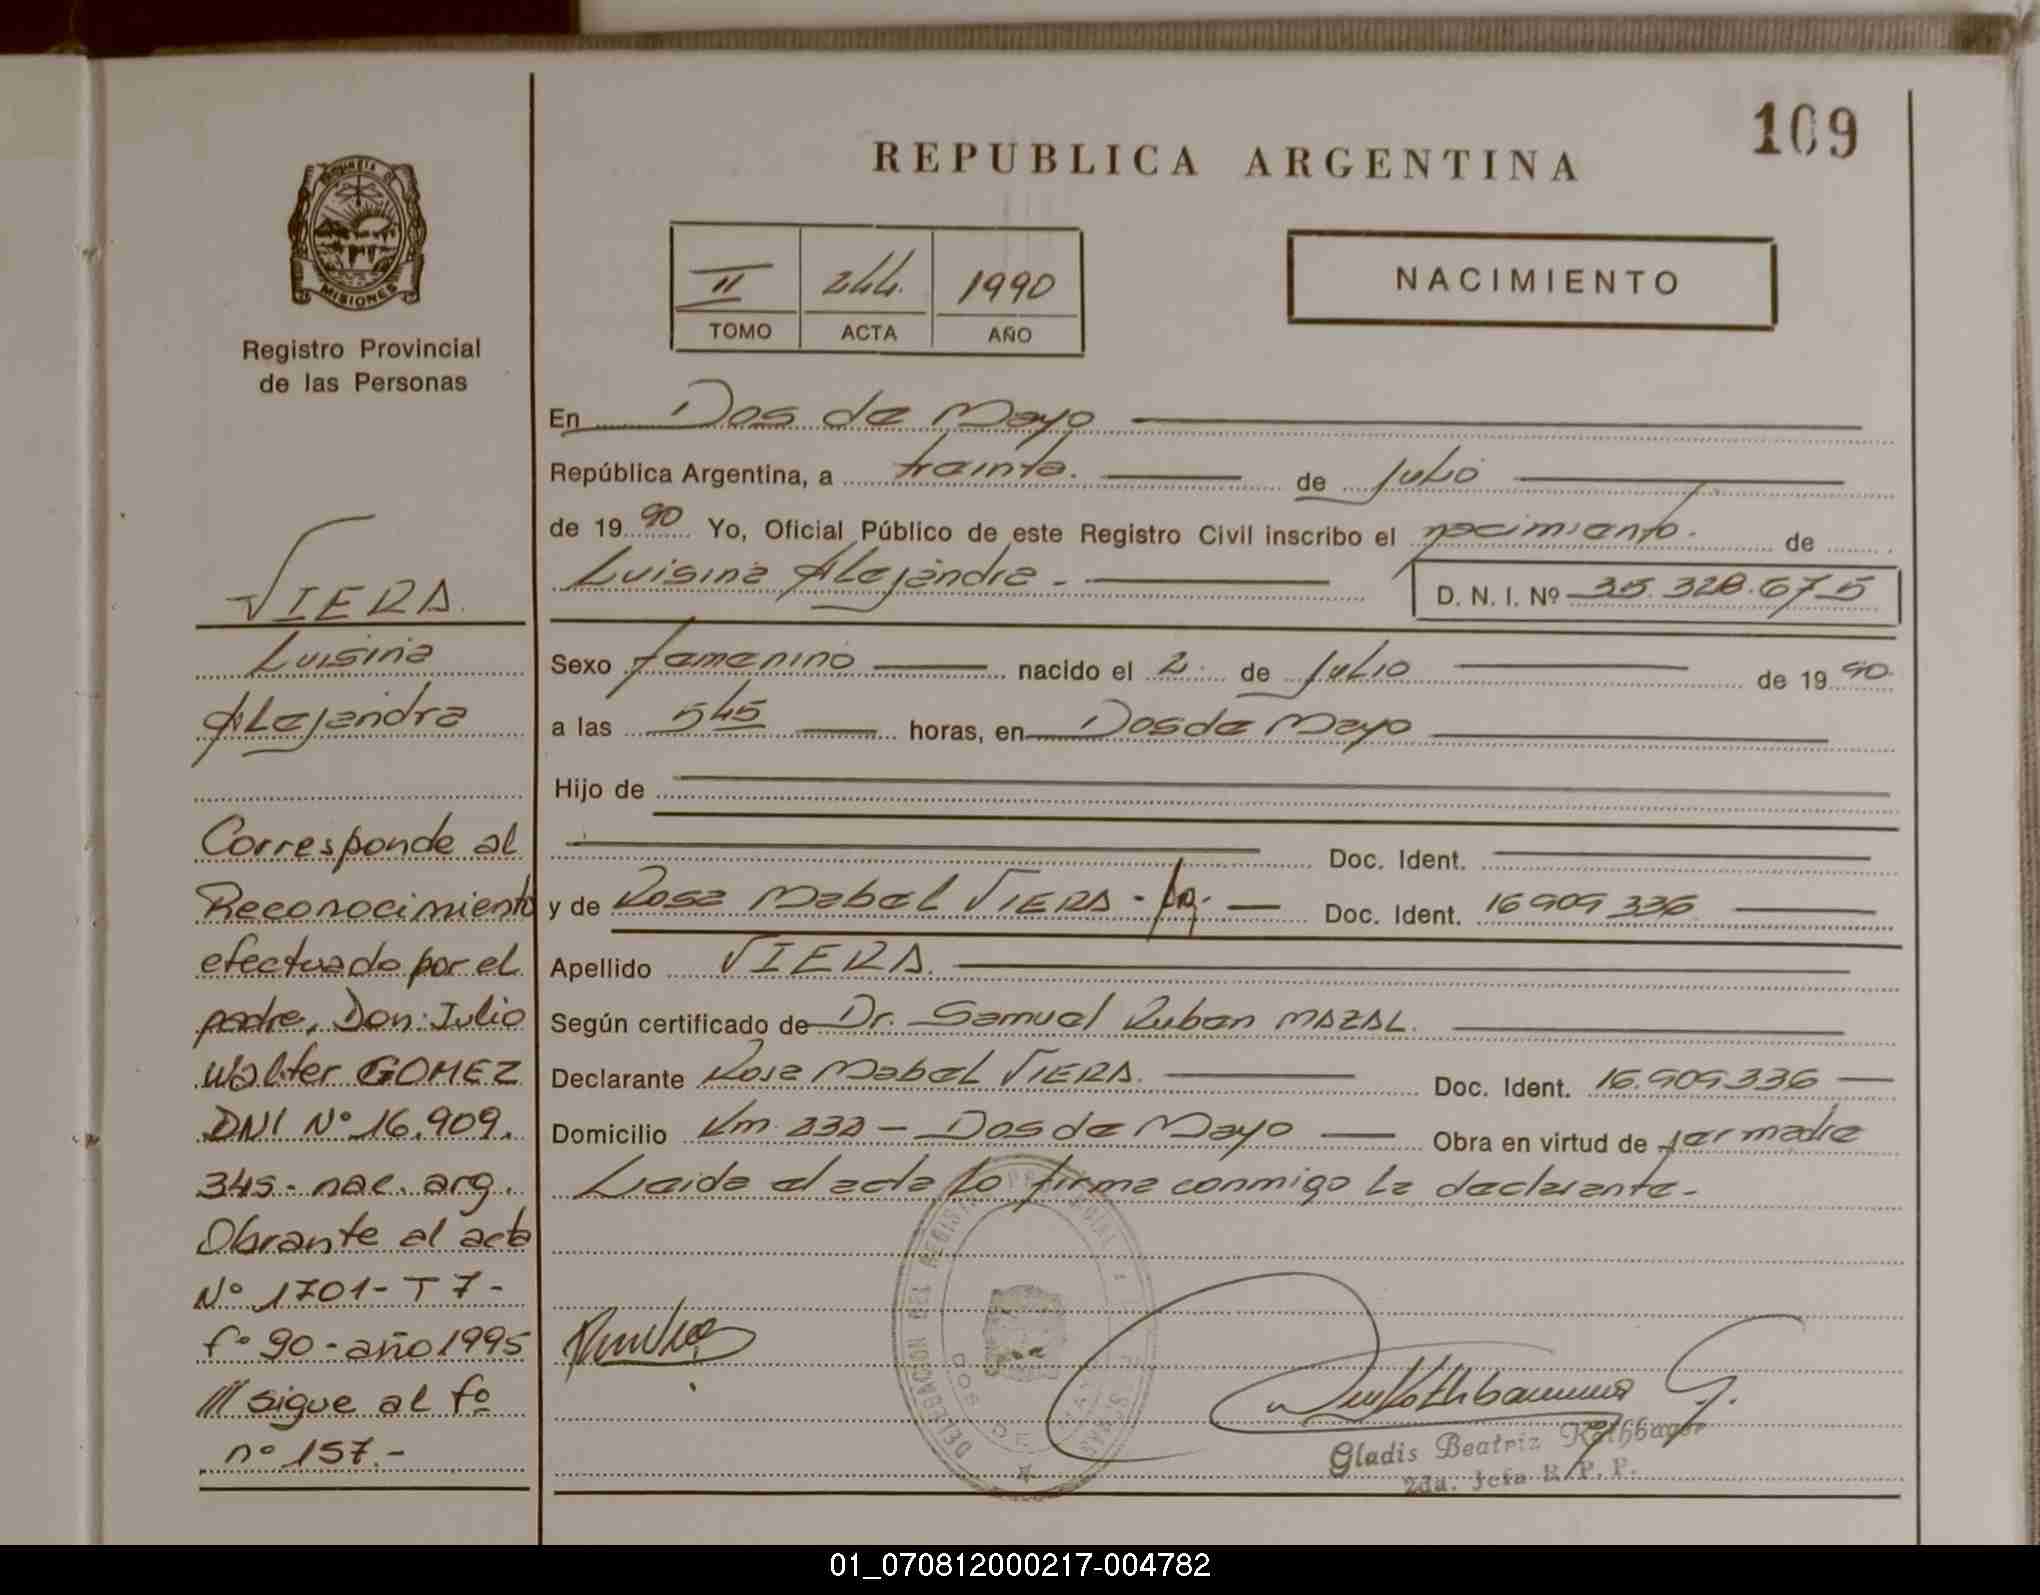 109
REPUBLICA ARGENTINA
PROVINCIA DE
MISIONES
Registro Provincial
de las Personas
II 244. 1990
TOMO ACTA AÑO
NACIMIENTO
En Dos de Mayo
República Argentina, a treinta. de Julio
de 1990 Yo, Oficial Público de este Registro Civil inscribo el nacimiento. de
Luisina Alejandra - D. N. I. Nº 35.328.675
Sexo femenino nacido el 2. de Julio de 1990.
a las 545 horas, en Dos de Mayo
Hijo de
Doc. Ident.
y de Rosa Mabel VIERA - Doc. Ident. 16909336
Apellido VIERA.
Según certificado de Dr. Samuel Ruben MAZAL.
Declarante Rosa Mabel VIERA. Doc. Ident. 16.909.336
Domicilio Km. 232 - Dos de Mayo Obra en virtud de ser madre
Leida el acta lo firma conmigo la declarante.
VIERA.
Luisina
Alejandra
Corresponde al
Reconocimiento
efectuado por el
padre, Don: Julio
Walter GOMEZ
DNI Nº 16.909.
345 - nac. arg.
Obrante al acta
Nº 1701 - T 7 -
fº 90 - año 1995
/// sigue al fº
nº 157.-
DELEGACION DEL REGISTRO PROVINCIAL
DOS DE MAYO
Gladis Beatriz
2da. Jefa R. P. P.
01_070812000217-004782